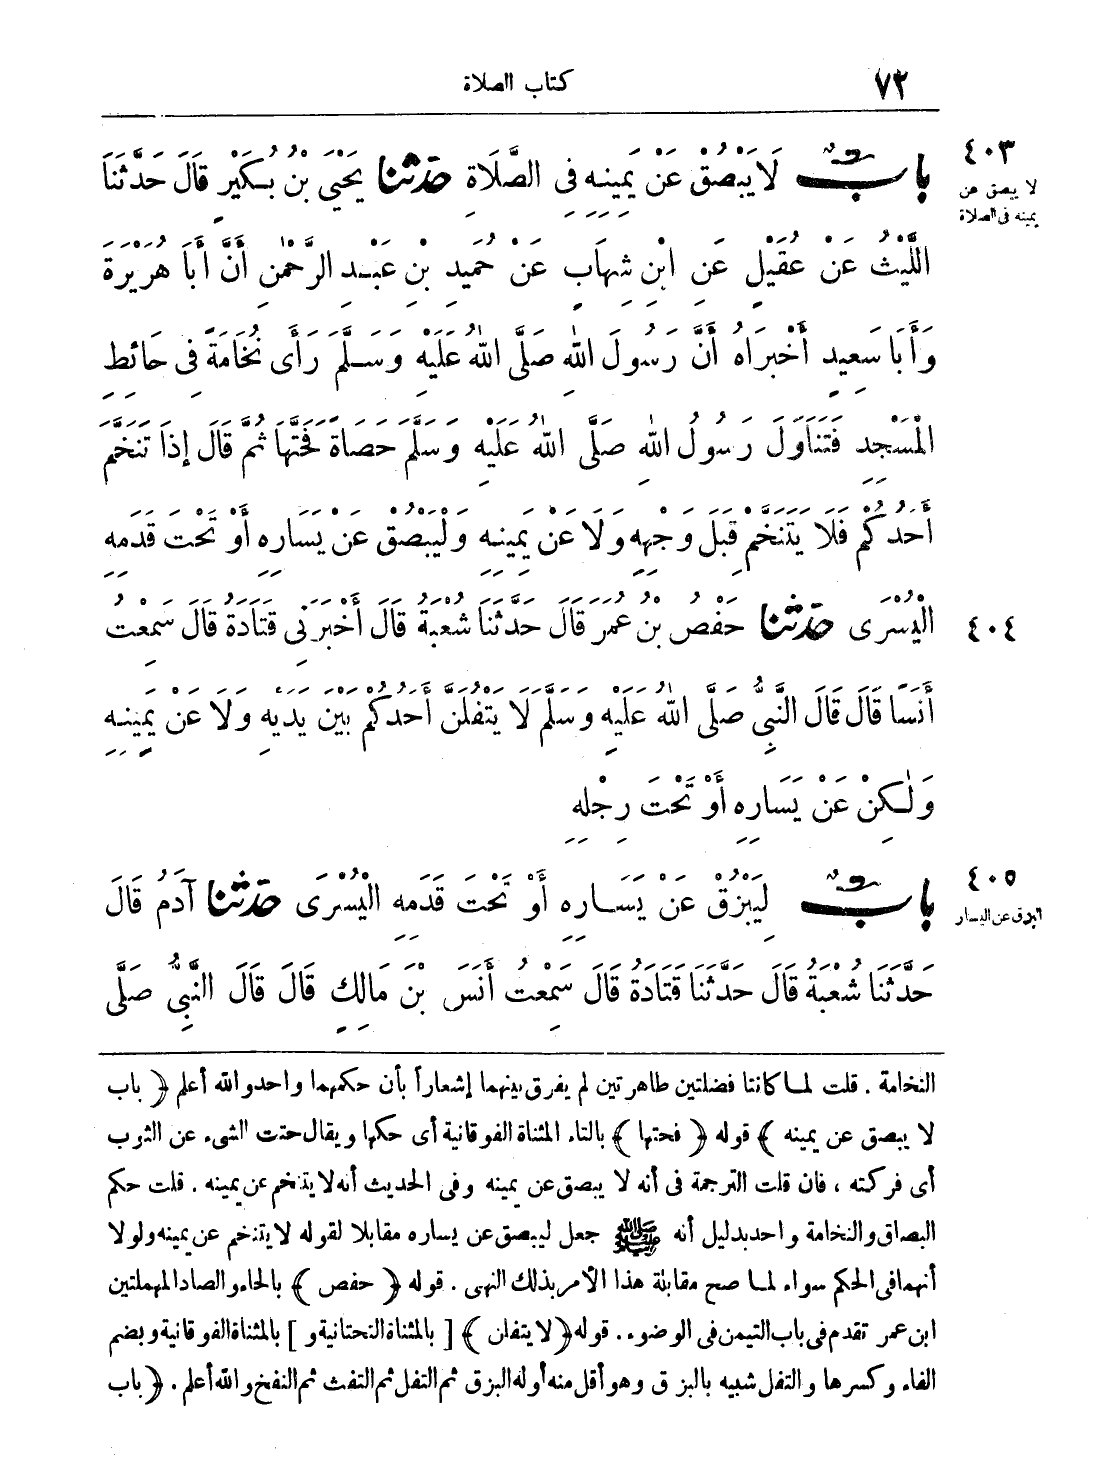 ٧٢ كتاب الصلاة
٤٠٣
لا يبصق عن
يمينه فى الصلاة
بَابٌ لَا يَبْصُقْ عَنْ يَمِينِهِ فِى الصَّلَاةِ حَدَّثَنَا يَحْيَى بْنُ بُكَيْرٍ قَالَ حَدَّثَنَا
اللَّيْثُ عَنْ عُقَيْلٍ عَنِ ابْنِ شِهَابٍ عَنْ حُمَيْدِ بْنِ عَبْدِ الرَّحْمٰنِ أَنَّ أَبَا هُرَيْرَةَ
وَأَبَا سَعِيدٍ أَخْبَرَاهُ أَنَّ رَسُولَ اللهِ صَلَّى اللهُ عَلَيْهِ وَسَلَّمَ رَأَى نُخَامَةً فِى حَائِطِ
الْمَسْجِدِ فَتَنَاوَلَ رَسُولُ اللهِ صَلَّى اللهُ عَلَيْهِ وَسَلَّمَ حَصَاةً فَحَتَّهَا ثُمَّ قَالَ إِذَا تَنَخَّمَ
أَحَدُكُمْ فَلَا يَتَنَخَّمْ قِبَلَ وَجْهِهِ وَلَا عَنْ يَمِينِهِ وَلْيَبْصُقْ عَنْ يَسَارِهِ أَوْ تَحْتَ قَدَمِهِ
الْيُسْرَى حَدَّثَنَا حَفْصُ بْنُ عُمَرَ قَالَ حَدَّثَنَا شُعْبَةُ قَالَ أَخْبَرَنِى قَتَادَةُ قَالَ سَمِعْتُ
٤٠٤
أَنَسًا قَالَ قَالَ النَّبِىُّ صَلَّى اللهُ عَلَيْهِ وَسَلَّمَ لَا يَتْفُلَنَّ أَحَدُكُمْ بَيْنَ يَدَيْهِ وَلَا عَنْ يَمِينِهِ
وَلٰكِنْ عَنْ يَسَارِهِ أَوْ تَحْتَ رِجْلِهِ
٤٠٥
البزق عن اليسار
بَابٌ لِيَبْزُقْ عَنْ يَسَارِهِ أَوْ تَحْتَ قَدَمِهِ الْيُسْرَى حَدَّثَنَا آدَمُ قَالَ
حَدَّثَنَا شُعْبَةُ قَالَ حَدَّثَنَا قَتَادَةُ قَالَ سَمِعْتُ أَنَسَ بْنَ مَالِكٍ قَالَ قَالَ النَّبِىُّ صَلَّى
النخامة . قلت لما كانتا فضلتين طاهرتين لم يفرق بينهما إشعاراً بأن حكمهما واحد والله أعلم ﴿ باب
لا يبصق عن يمينه ﴾ قوله ﴿ فحتها ﴾ بالتاء المثناة الفوقانية أى حكها ويقال حتت الشىء عن الثوب
أى فركته ، فان قلت الترجمة فى أنه لا يبصق عن يمينه وفى الحديث أنه لا يتنخم عن يمينه . قلت حكم
البصاق والنخامة واحد بدليل أنه ﷺ جعل ليبصق عن يساره مقابلا لقوله لا يتنخم عن يمينه ولولا
أنهما فى الحكم سواء لما صح مقابلة هذا الأمر بذلك النهى . قوله ﴿ حفص ﴾ بالحاء والصاد المهملتين
ابن عمر تقدم فى باب التيمن فى الوضوء . قوله ﴿ لا يتفلن ﴾ [ بالمثناة التحتانية و ] بالمثناة الفوقانية وبضم
الفاء وكسرها والتفل شبيه بالبزق وهو أقل منه أوله البزق ثم التفل ثم التفث ثم النفخ والله أعلم . ﴿ باب